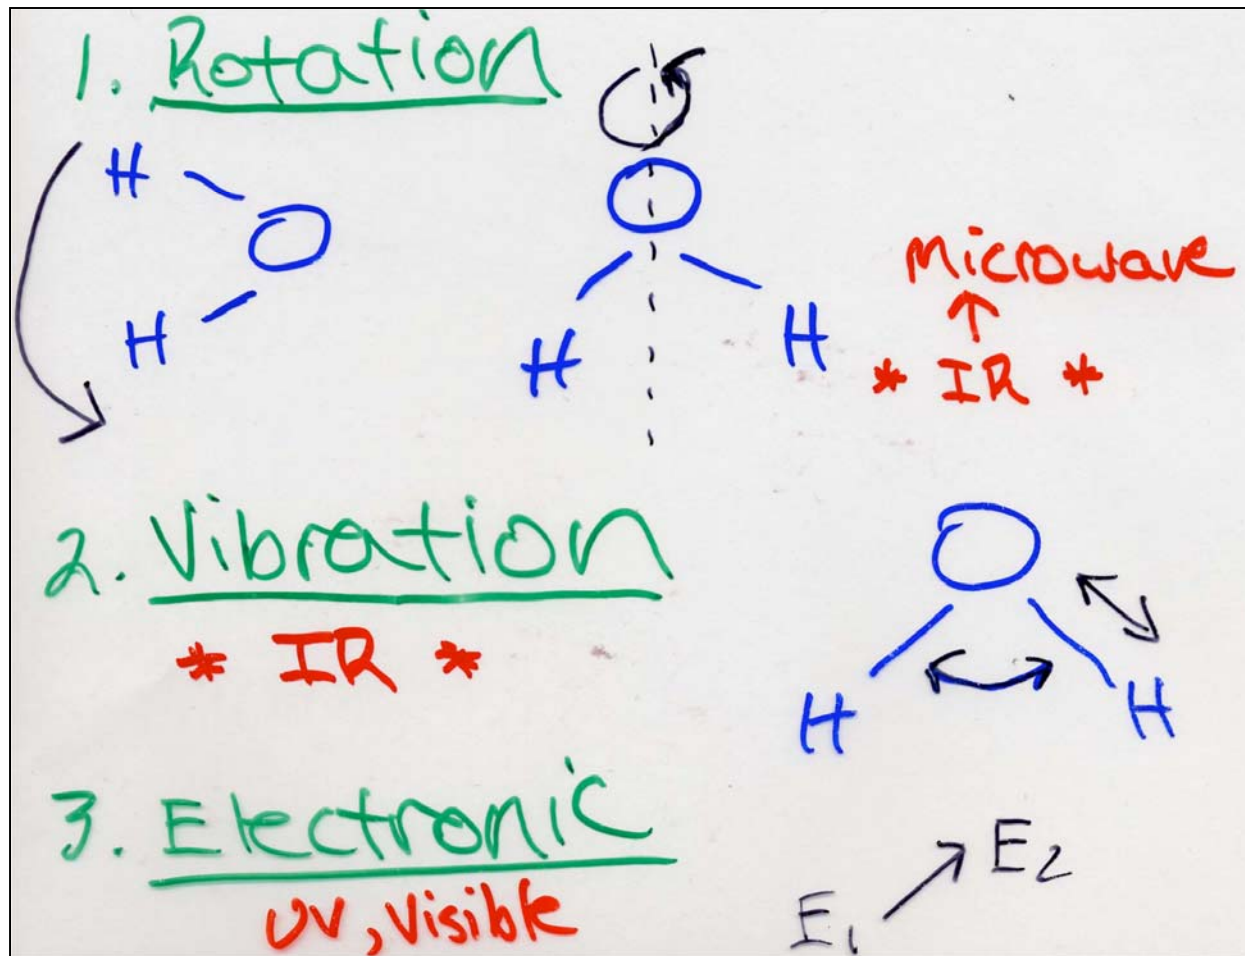 1. Rotation
H
O
H
O
H H
Microwave
↑
* IR *
2. Vibration
* IR *
O
H H
3. Electronic
UV, Visible
E₁ → E₂